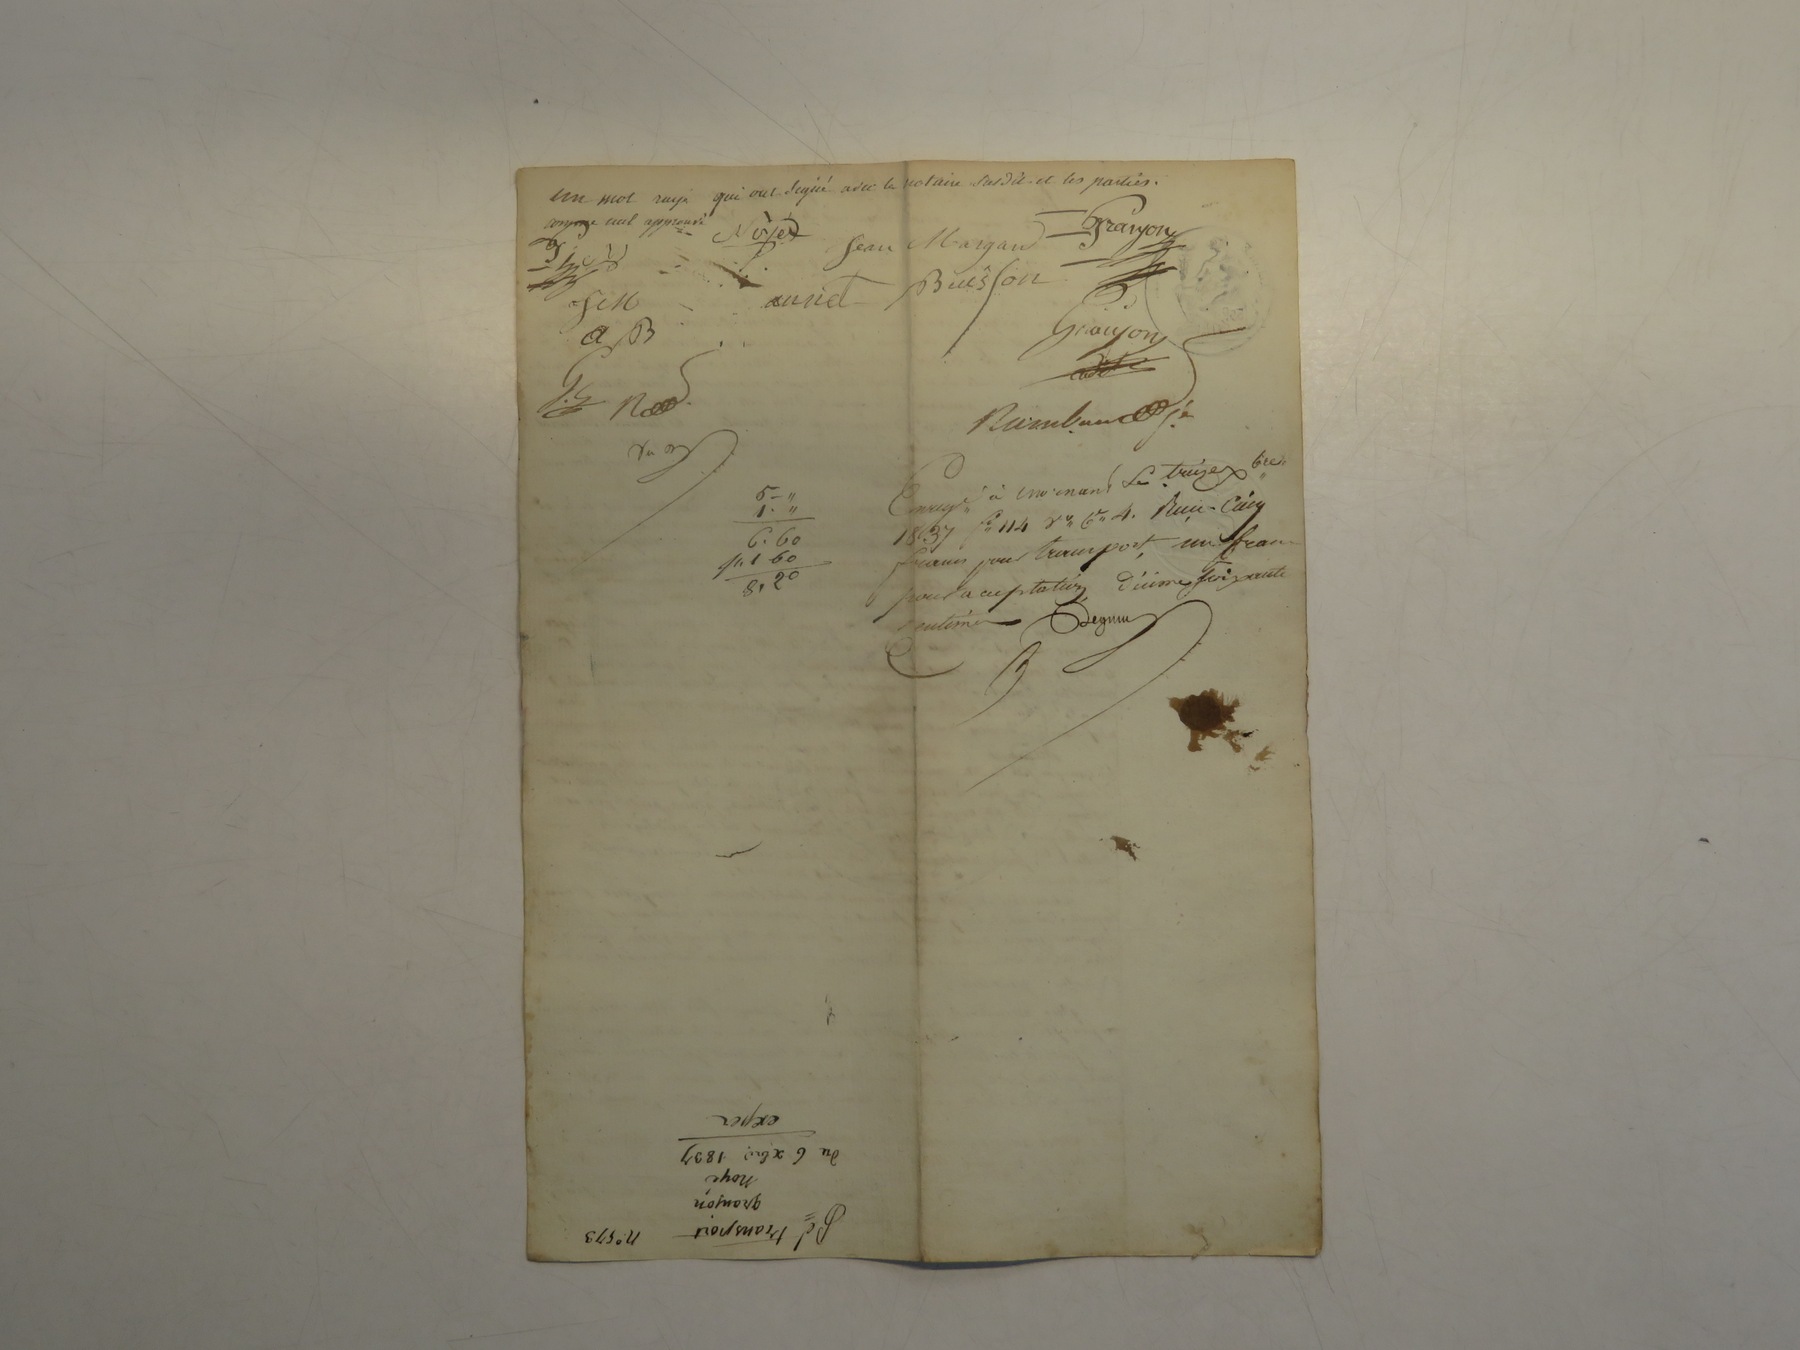 un mot rayé qui ont signé avec le notaire susdit et les parties.
comme nul approuvé
Noyé Jean Margan Granjon
JM aunet Buisson
a B Granjon
cadet
G. G R
Rambaud
5 "
1 "
6. 60
1 60
8. 20
Enregé à mornant Le treize Xbre
1837 fo 114 Ro Ce 4. Reçu Cinq
francs pour transport, un franc
pour acceptation, Décime soixante
centimes
N° 573
Pd transport
granjon
Noyé
du 6 xbre 1837
exper